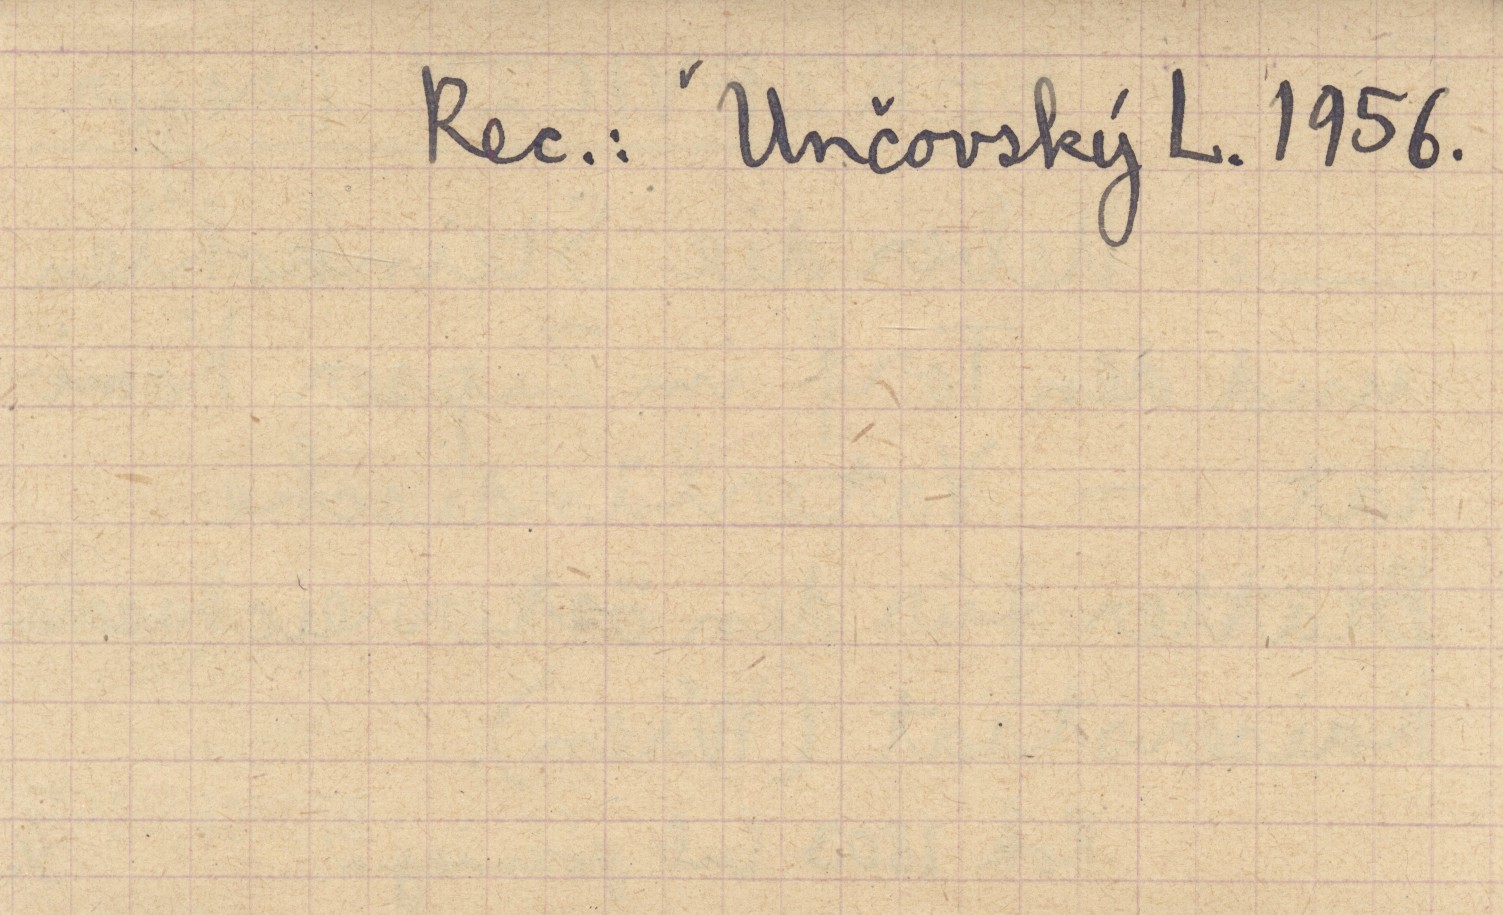 Rec.: Unčovský L. 1956.